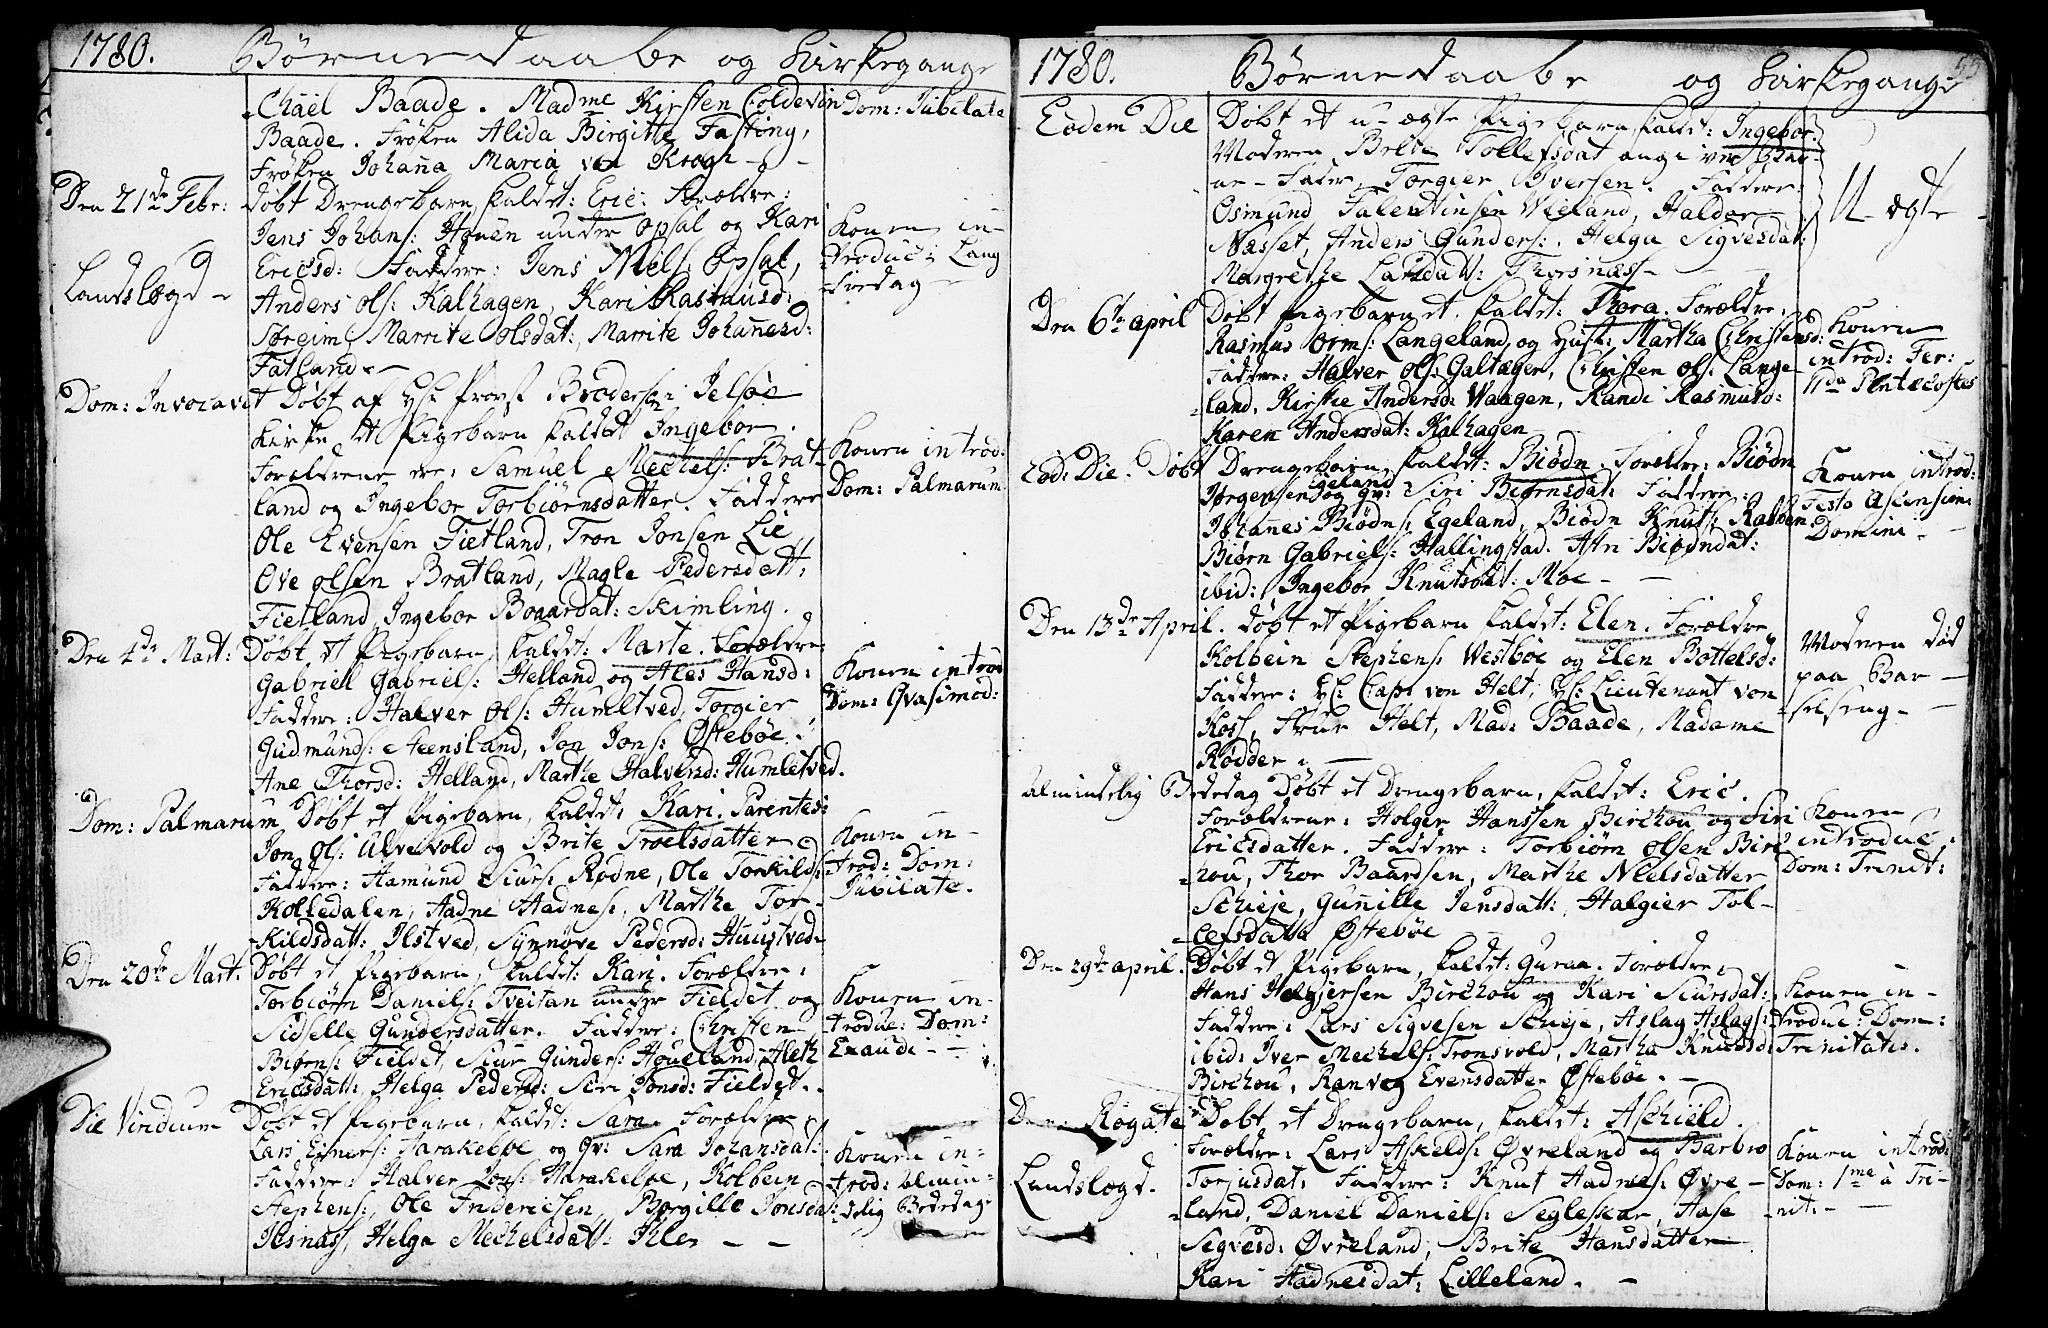 1780. Børnedaabe og Kirkegange
-Chäel Baade. Madme Kirsten Coldevin
Baade. Frøken Alida Birgitte Fasting,
Frøken Johaña Maria von Krogh - -
Dom: Jubilate
Den 21de Febr:
døbt Drengebarn kaldet: Eric: Forældre:
Jens Johans: Houen under Opsal og Kari
Ericsd: Faddere: Jens Niels: Opsal,
Anders Ols: Kalhagen, Kari Rasmusd:
Søreim, Marrite Olsdat:, Marrite Johañesd:
Fatland. -
Landslægd -
Konen in-
troduc: Lang
-fredag -
Dom: Invocavit Døbt af Hr: Provst Brodersen i Jelsøe
Kirke et Pigebarn kaldet Ingebor.
Forældrene ere: Samuel Mechels: Brat-
land og Ingebor Torbiørnsdatter. Faddere
Ole Evensen Fietland, Tron Jonsen Lie
Ove Olsen Bratland, Magle Pedersdatt:
Fietland, Ingebor Boaardat: Skimling.
Konen introd:
Dom: Palmarum
Den 4de Mart:
Døbt et Pigebarn, kaldet: Marte. Forældre
Gabriel Gabriels: Helland og Ales Hansd:
Faddere: Halver Ols: Humletved, Torgier
Gudmunds: Steensland, Jon Jons: Østebøe
Ane Thorsd: Helland, Marthe Halversd: Humletved.
Konen introd
Dom: Qvasimod:
Dom: Palmarum Døbt et Pigebarn, kaldet: Kari. Parentes:
Jon Ols: Alvevold og Brite Troelsdatter
Faddere: Aamund Siurs: Rødne, Ole Torkilds:
Kolledalen, Aadne Aadnes:, Marthe Tor-
-kildsdatt: Ilstved, Synnøve Pedersd: Huustved
Konen in-
-trod: Dom:
Jubilate.
Den 20de Mart:
Døbt et Pigebarn, kaldet: Kari. Forældre:
Torbiørn Daniels: Tveitan under Fieldet og
Sidselle Gundersdatter. Faddere: Christen
Biørns: Fieldet, Siur Gunders: Houeland, Aleth
Ericsdatt: Helga Pedersd: Siri Jonsd: Fieldet.
Konen in-
troduc: Dom:
Exaudi. -
Die Viridium Døbt et Pigebarn, kaldet: Sara. Forældre
Lars Einers: Harakeløe og Qv: Sara Johansdat:
Faddere: Halver Lars: Harakeløe, Kolbein
Stephens:, Ole Friderichsen, Borgille Jonsdat:
Ilsnæss, Helga Mechelsdatt: Kler - -
Konen in-
-trod: almin-
-delig Bededag.
1780. Børnedaabe og Kirkegange
55
Eodem Die
Døbt et u-ægte Pigebarn, kaldet: Ingebor.
Moderen Brite Tollefsdat angiver Bar-
ne-Fader Torgier Iversen. Faddere:
Osmund Falentinsen Vieland, Haldor
Næsset, Anders Gunders:, Helga Sigvesdat:
Margrethe Larsdatt: Thorsnæs -
U-ægte -
Den 6te April
Døbt Pigebarnet, kaldet: Thora. Forældre,
Rasmus Orms: Langeland, og Hust: Martha Christensd:
Faddere: Halver Ols: Galtagen, Christen Ols: Lange-
land, Kirstie Andersd: Waagen, Randi Rasmusd:
Karen Andersdat: Kalhagen
Konen
introd: Fer:
IIda Pentecostes
Eod: Die. Døbt Drengebarn, kaldet: Biødn. Forældre: Biødn
Jørgensen Egeland og Qv: Siri Biørnsdat: Faddere:
Johañes Biødns: Egeland, Biødn Knuts: Kalben
Biørn Gabriels: Hallingstad. Atri Biørndat:
ibid: Ingebor Knutsdat: Moe - -
Konen introd:
Festo Ascensioni
Domini -
Den 13de April. Døbt et Pigebarn kaldet: Elen. Forældre
Kolbein Stephens: Westbøe og Elen Bottelsd:
Faddere: Hr: Capt von Helt, Hr: Lieutenant von
Koss, Frue Helt, Mad: Baade, Madame
Rødder. -
Moderen død
paa Bar-
-selseng -
Almindelig Bededag Døbt et Drengebarn, kaldet: Eric.
Forældrene: Holger Hanssen Birchou og Siri
Ericsdatter. Faddere: Torbiørn Olsen Birc
-hou, Thor Baardsen, Marthe Nielsdatter
Schieje, Guñille Jensdatt:, Halgier Tol-
-lefsdatter Østebøe
Konen
introduc:
Dom: Trinit:
Den 29de April. Døbt et Pigebarn, kaldet: Guraa. Forældre:
Hans Helgiersen Birchou og Kari Siursdat:
Faddere: Lars Sigvesen Schieje, Aslag Aslags:
ibid: Iver Mechels: Tronsvold, Martha Knudsd:
Birchou, Ranveg Evensdatter Østebøe. -
Konen in-
troduc: Dom:
Trinitatis.
Dom: Rogate Døbt et Drengebarn, kaldet: Aschield.
Forældre: Lars Askelds: Øvreland og Barbro
Torjusdat: Faddere: Knut Aadnes: Øvre-
land, Daniel Daniels: Segleskar, Aase
Segvesd: Øvreland, Brite Hansdatter
Kari Aadnesdat: Lilleland. -
Landslægd.
Konen introd:
Dom: 1me à Tri-
-nit: -